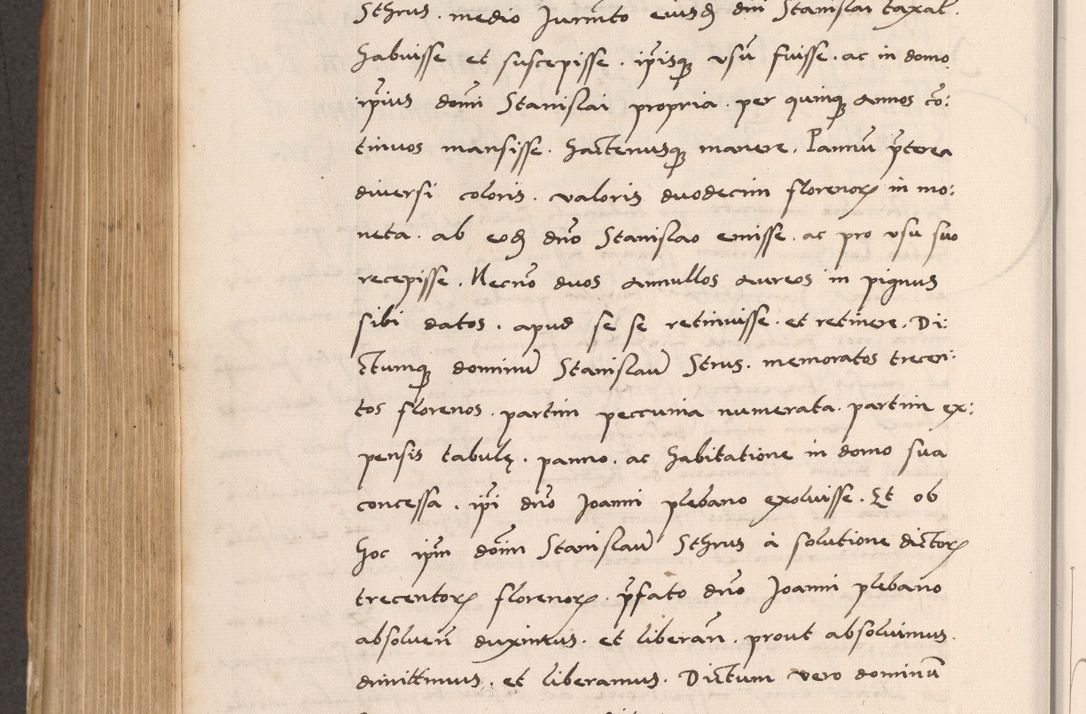 Sthrus. medio Jurm̃to eiusđ dñi Stanislai taxat.
habuisse et suscepisse. ip̃isq́ʒ usũ fuisse. ac in domo
ip̃ius domĩ Stanislai propria. per quinqʒ annos cõ:
tinuos mansisse. hactenusqʒ manere. Pannũ p̃terea
diversi coloris. valoris duodecim florenorꝝ in mo:
neta. ab eođ dño Stanislao emisse. ac pro usu suo
recepisse. Necnõ duos annullos aureos in pignus
sibi datos. apud se se retinuisse. et retinere. Di:
ctumqʒ dominũ Stanislaũ Strus. memoratos trecen:
tos florenos. partim peccunia numerata. partim ex:
pensis tabulę. panno. ac habitatione in domo sua
concessa. ip̃i dño Joanni plebano exoluisse. Et ob
hoc ip̃m dom̃ Stanislaũ Sthrus à solutione dictorꝝ
trecentorꝝ florenorꝝ. p̃fato dño Joanni plebano
absolueñ duximus. et liberañ. prout absoluimus.
dimittimus. et liberamus. Dictum vero dominũ